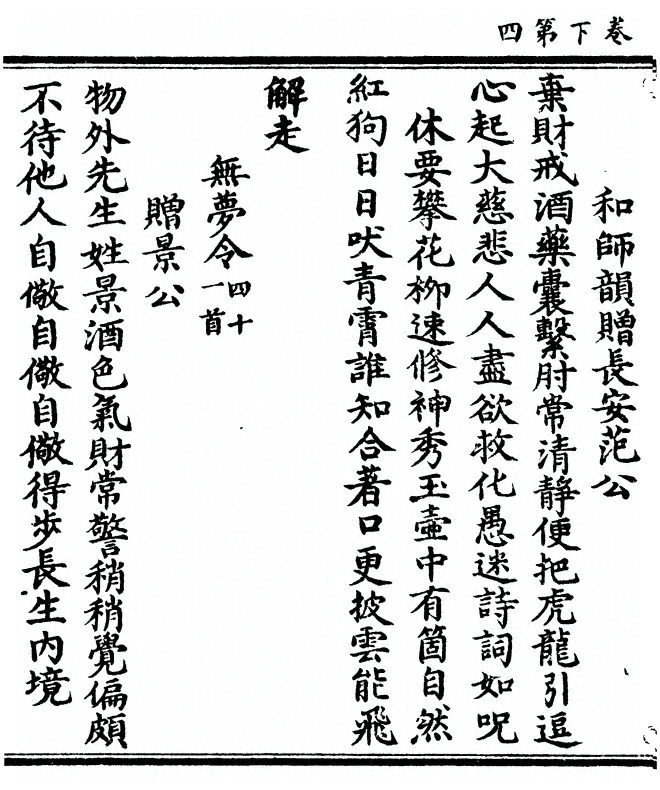 卷下第四
和師韻贈長安范公
棄財戒酒藥囊繫肘常清靜便把虎龍引逗
心起大慈悲人人盡欲救化愚迷詩詞如呪
休要攀花柳速修神秀玉壺中有箇自然
紅狗日日吠青霄誰知合著口更披雲能飛
解走
無夢令四十一首
贈景公
物外先生姓景酒色氣財常警稍稍覺偏頗
不待他人自儆自儆自儆得步長生內境